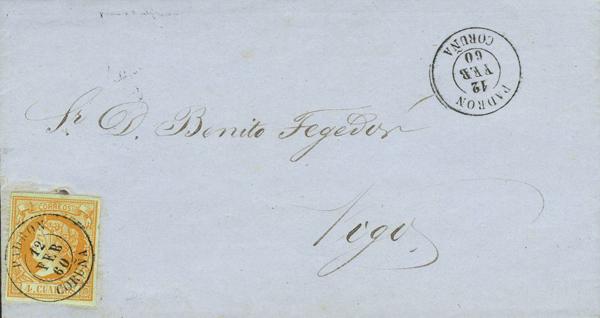 PADRON
12
FEB
60
CORUÑA
Sr. D. Benito Fegedor
Vigo
CORREOS
PADRON
12
FEB
60
CORUÑA
4 CUART